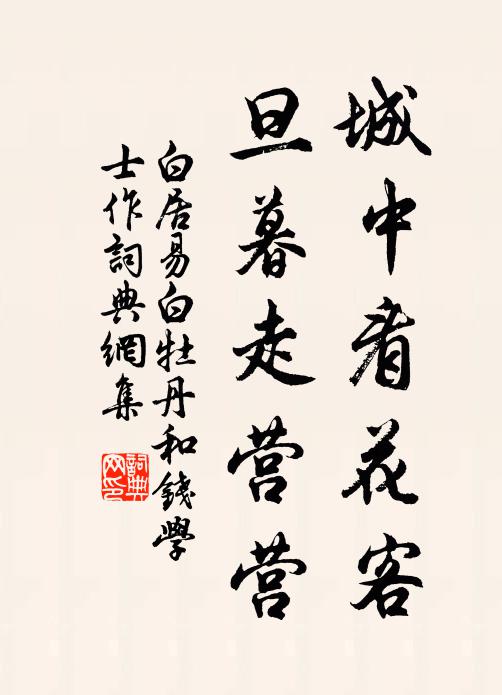 城中看花客
旦暮走营营
白居易白牡丹和錢學
士作詞典網集
詞典
网印